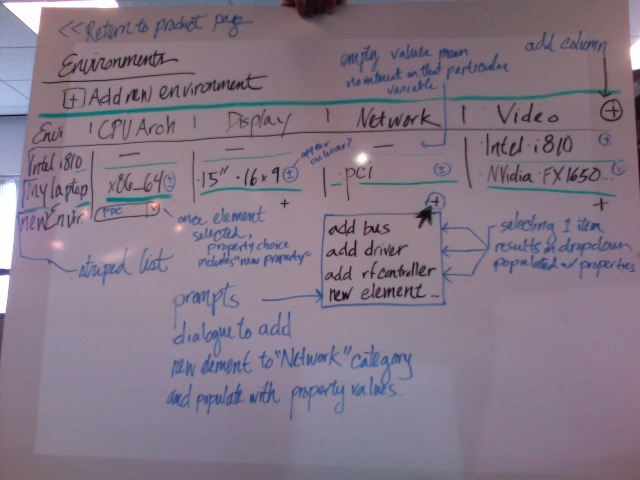 << Return to product page
Environments
[+] Add new environment
empty values mean
no interest in that particular
variable
add column
Envi | CPU Arch | Display | Network | Video +
Intel i810 — — — Intel i810
my laptop x86_64 15" · 16x9 pci NVidia FX1650...
new Envr. PPC
appear on hover?
+ + +
once element
selected,
property choice
includes "new property"
striped list
add bus
add driver
add rf controller
new element...
selecting 1 item
results in dropdown
populated w/ properties
prompts
dialogue to add
new element to "Network" category
and populate with property values.